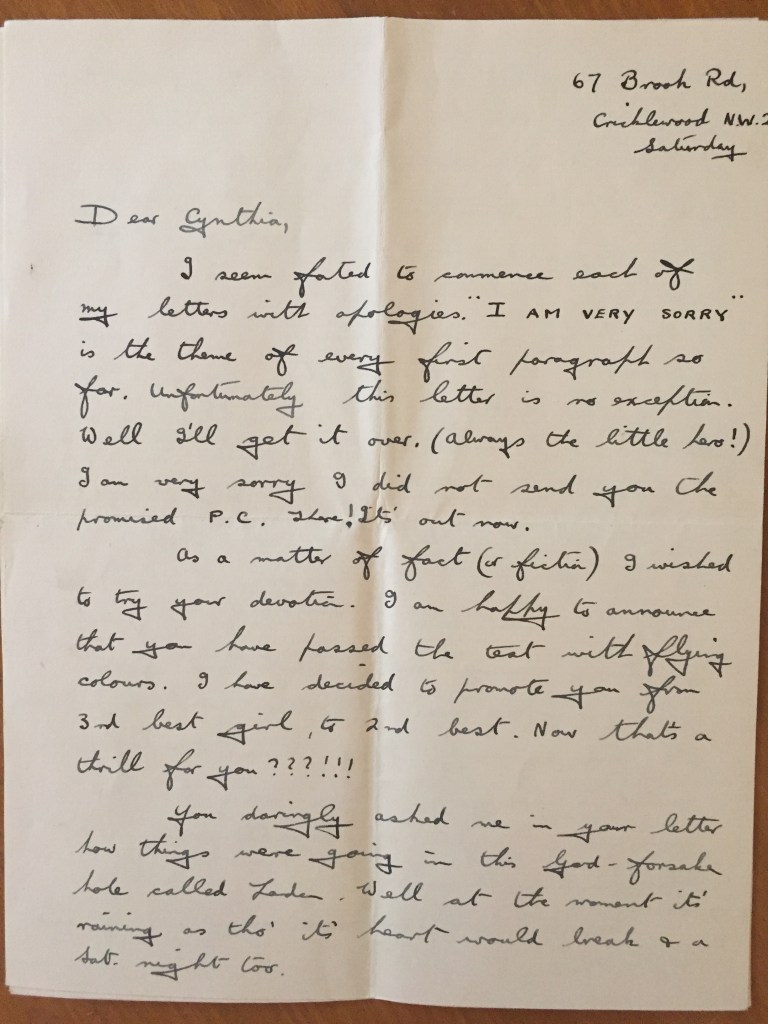 67 Brook Rd,
Cricklewood N.W.2
Saturday
Dear Cynthia,
I seem fated to commence each of
my letters with apologies. "I AM VERY SORRY"
is the theme of every first paragraph so
far. Unfortunately this letter is no exception.
Well I'll get it over. (Always the little hero!)
I am very sorry I did not send you the
promised P.C. There! It's out now.
As a matter of fact (or fiction) I wished
to try your devotion. I am happy to announce
that you have passed the test with flying
colours. I have decided to promote you from
3rd best girl, to 2nd best. Now that's a
thrill for you ???!!!
You daringly asked me in your letter
how things were going in this God-forsaken
hole called London. Well at the moment it's
raining as tho' it's heart would break & a
Sat. night too.